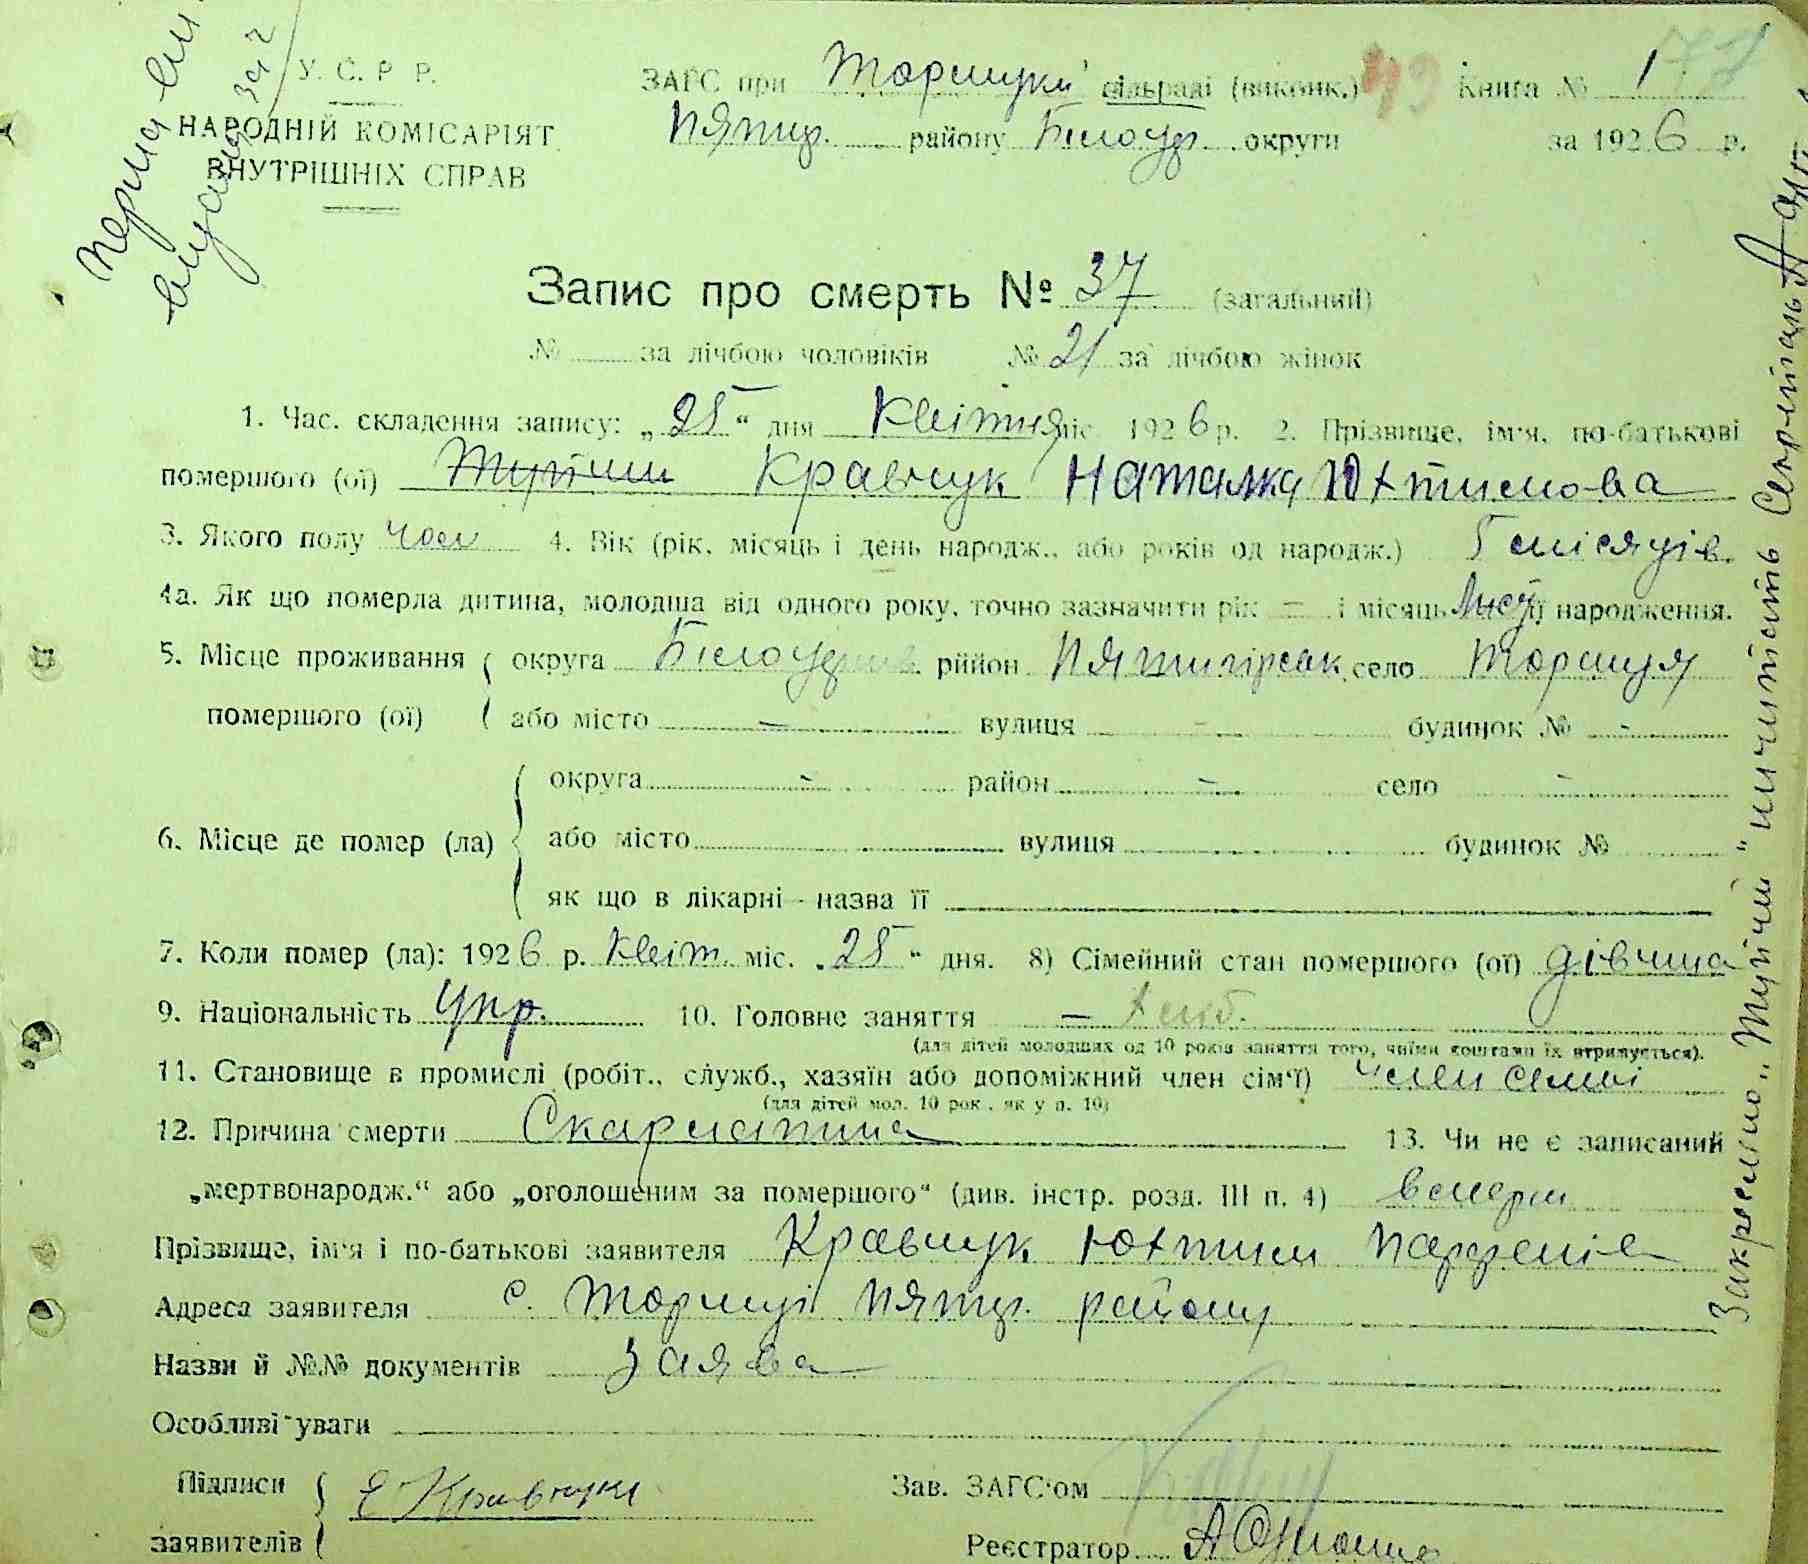 У. С. Р Р.
НАРОДНІЙ КОМІСАРІЯТ
ВНУТРІШНІХ СПРАВ
ЗАГС при Торицькій сільраді (виконк.) Книга № 1
Пятиг. району Білоцер. округи за 1926 р.
Запис про смерть № 37 (загальний)
№ за лічбою чоловіків № 21 за лічбою жінок
1. Час. складення запису: „25“ дня Квітня міс. 1926 р. 2. Прізвище, ім'я, по-батькові
помершого (ої) Кравчук Наталка Юхтимова
3. Якого полу 4. Вік (рік, місяць і день народж., або років од народж.) 5 місяців.
4а. Як що померла дитина, молодша від одного року, точно зазначити рік — і місяць її народження.
5. Місце проживання округа Білоцерків район Пятигірськ село Ториця
помершого (ої) або місто — вулиця - будинок № -
округа - район - село -
6. Місце де помер (ла) або місто вулиця будинок №
як що в лікарні - назва її
7. Коли помер (ла): 1926 р. Квіт. міс. „25“ дня. 8) Сімейний стан помершого (ої) дівчина
9. Національність Укр. 10. Головне заняття — хліб.
(для дітей молодших од 10 років заняття того, чиїми коштами їх втримується).
11. Становище в промислі (робіт., служб., хазяїн або допоміжний член сім'ї) член семьі
(для дітей мол. 10 рок. як у п. 10)
12. Причина смерти Скарлатина 13. Чи не є записаний
„мертвонародж.“ або „оголошеним за помершого“ (див. інстр. розд. III п. 4) вмерш
Прізвище, ім'я і по-батькові заявителя Кравчук Юхтим Парфенів
Адреса заявителя с. Ториці Пятиг. району
Назви й №№ документів заява
Особливі уваги
Підписи
заявителів Е Кравчук
Зав. ЗАГС'ом
Реєстратор
Закреслено „ “ личитать Секретарь